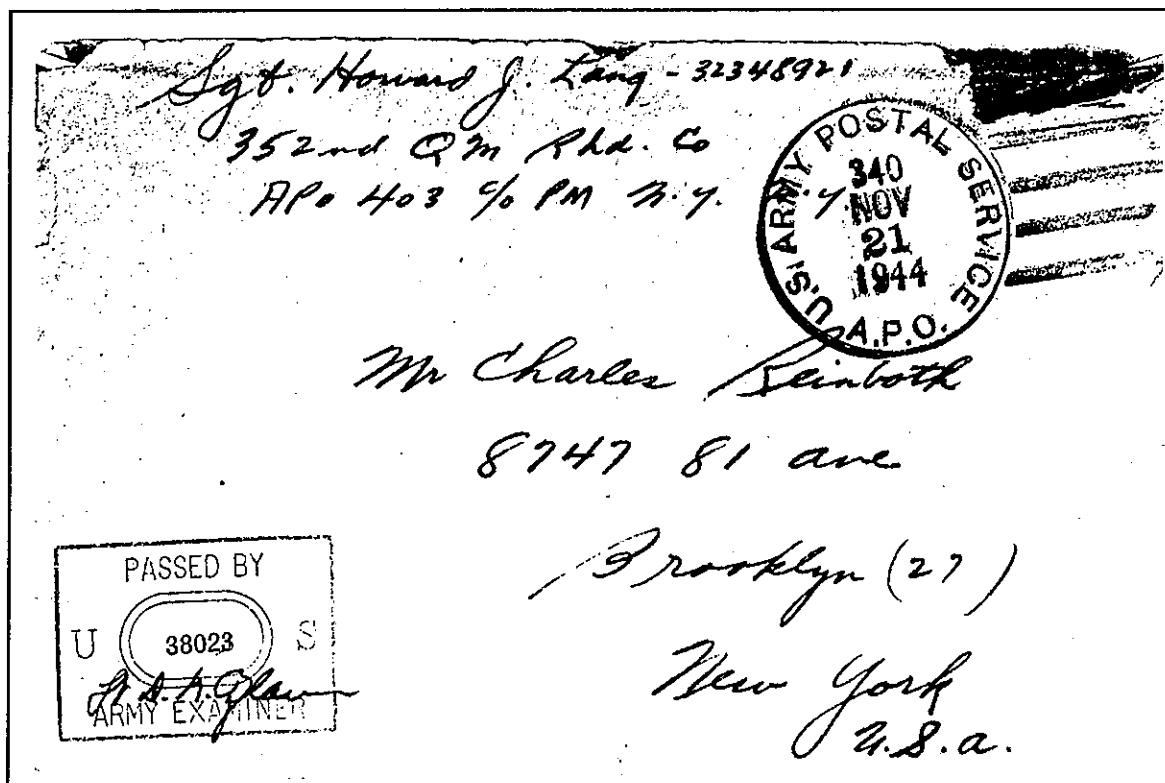 Sgt. Howard J. Lang - 32348921
352nd QM Rhd. Co
APO 403 c/o PM N.y. N.y.
U.S. ARMY POSTAL SERVICE
340
NOV
21
1944
A.P.O.
Mr Charles Reinboth
8747 81 ave
Brooklyn (27)
New York
U.S.a.
PASSED BY
U 38023 S
Lt D.
ARMY EXAMINER